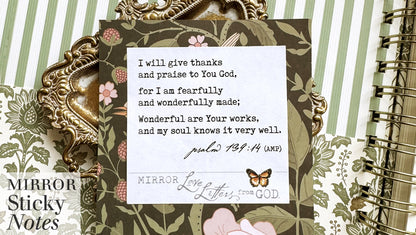 I will give thanks
and praise to You God,
for I am fearfully
and wonderfully made;
Wonderful are Your works,
and my soul knows it very well.
psalm 139:14 (AMP)
MIRROR Love Letters from GOD
MIRROR
Sticky
Notes